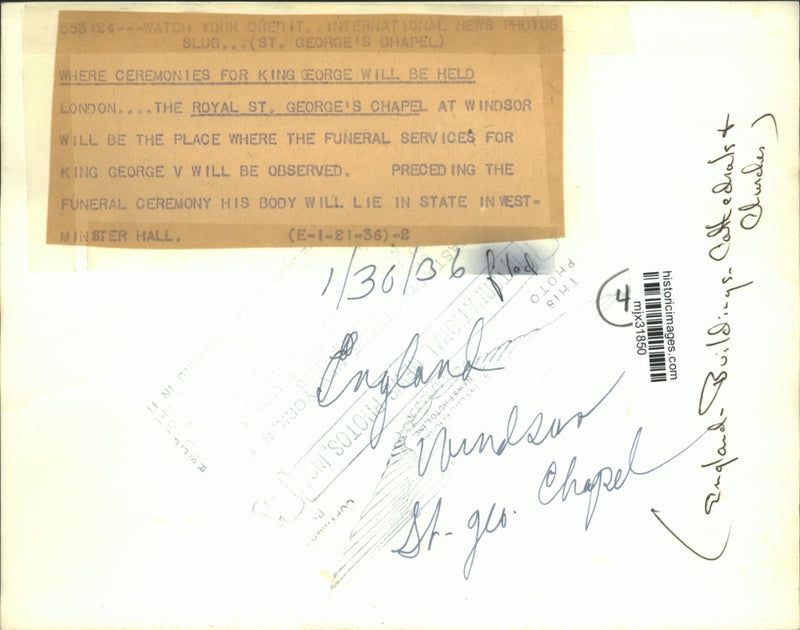 553124---WATCH YOUR CREDIT..INTERNATIONAL NEWS PHOTOS
SLUG...(ST. GEORGE'S CHAPEL)
WHERE CEREMONIES FOR KING GEORGE WILL BE HELD
LONDON....THE ROYAL ST. GEORGE'S CHAPEL AT WINDSOR
WILL BE THE PLACE WHERE THE FUNERAL SERVICES FOR
KING GEORGE V WILL BE OBSERVED. PRECEDING THE
FUNERAL CEREMONY HIS BODY WILL LIE IN STATE IN WEST-
MINSTER HALL. (E-1-21-36)-2
1/30/36 filed
THIS
PHOTO
INTERNATIONAL
PHOTOS, INC.
YORK, N.Y.
NEWS PHOTOS, INC.
England
Windsor
St. Geo. Chapel
4
historicimages.com
mjx31850
(England-Buildings-Cathedrals +
Churches)